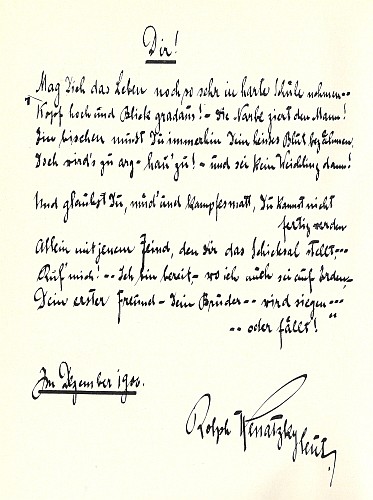 Dir!
Mag Dich das Leben noch so sehr in harte Schule nehmen --
"Kopf hoch und Blick gradaus! - die Narbe ziert den Mann!
Ein bischen mußt Du immerhin Dein heißes Blut bezähmen,
Doch wird's zu arg - hau' zu! - und sei kein Weichling dann!
Und glaubst Du, müd' und kampfesmatt, Du kannst nicht
fertig werden
Allein mit jenem Feind, den dir das Schicksal stellt ---
Ruf' mich! -- Ich bin bereit - wo ich auch sei auf Erden,
Dein erster Freund - Dein Bruder -- wird siegen ---
-- oder fällt!"
Im Dezember 1900.
Ralph Benatzky